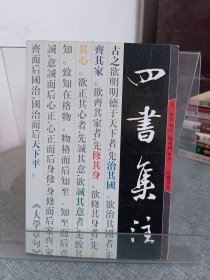 四書集注
古之欲明明德于天下者先治其國。欲治其國者先
齊其家。欲齊其家者先修其身。欲修其身者先正
其心。欲正其心者先誠其意。欲誠其意者先致其
知。致知在格物。物格而后知至。知至而后意
誠。意誠而后心正。心正而后身修。身修而后家
齊。家齊而后國治。國治而后天下平。
《大學章句》